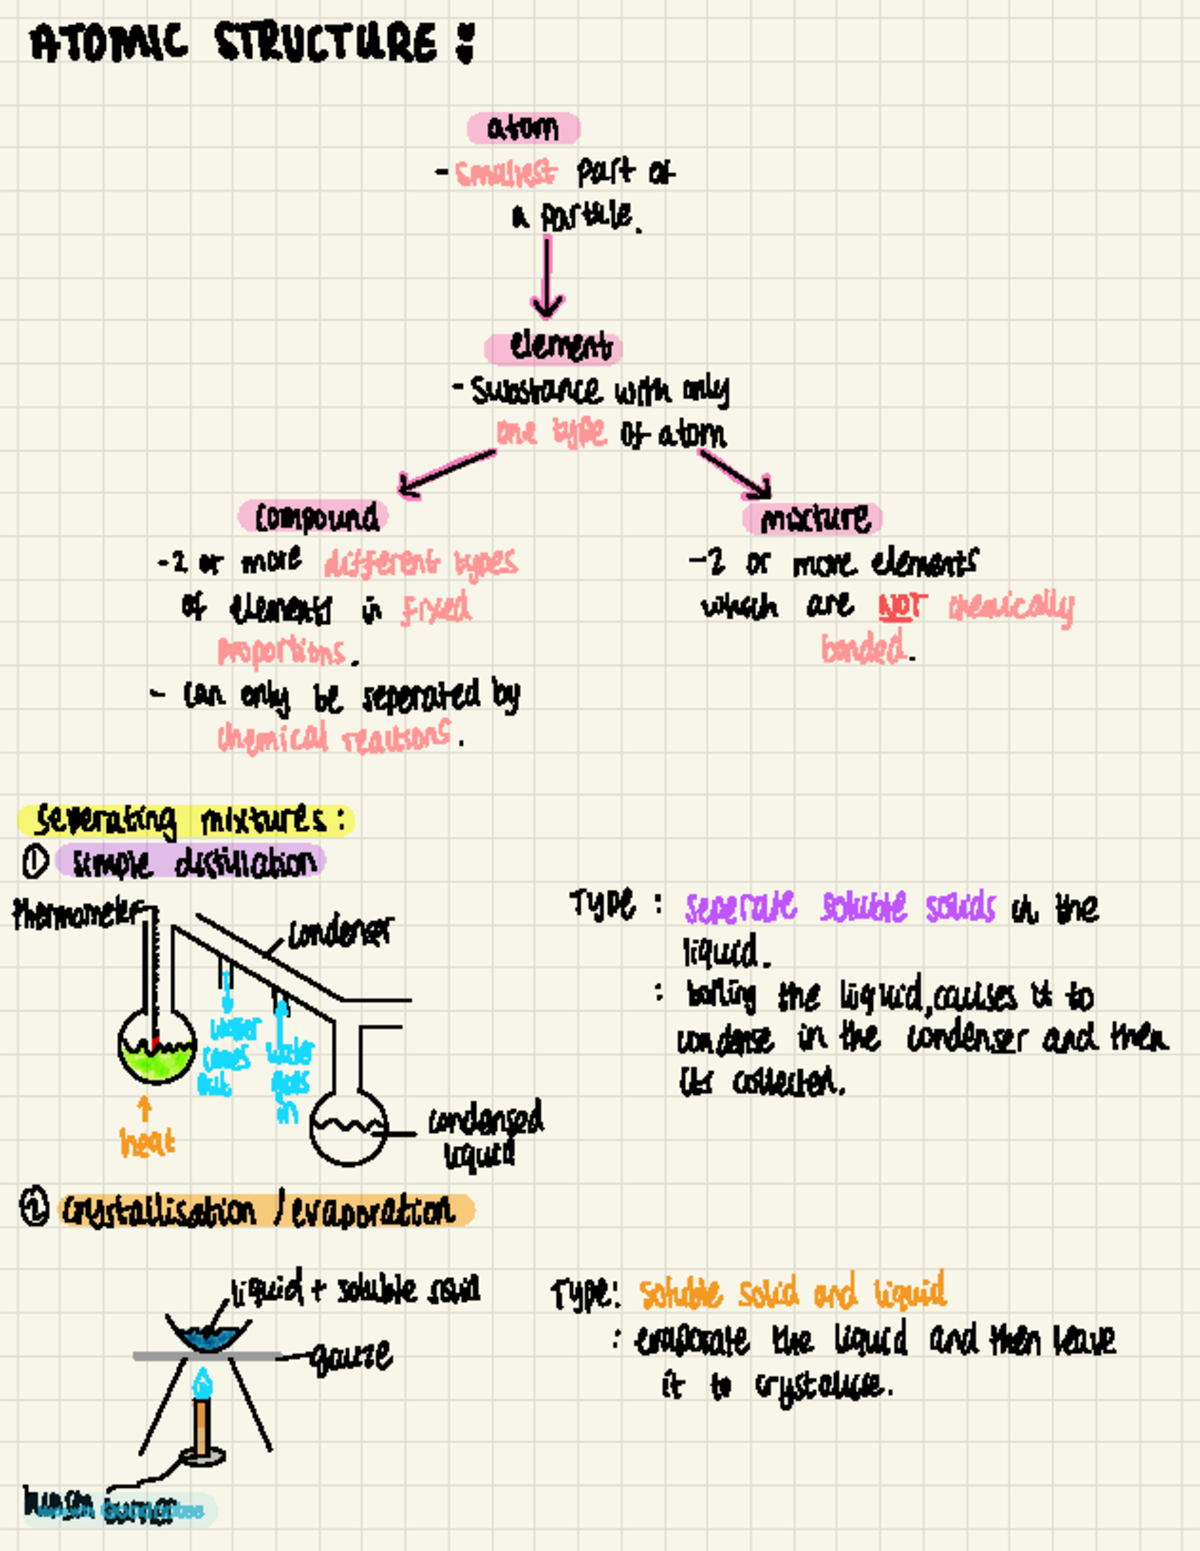 ATOMIC STRUCTURE :
atom
- smallest part of
a particle.
element
- substance with only
one type of atom
compound
- 2 or more different types
of elements in fixed
proportions.
- can only be seperated by
chemical reactions.
mixture
- 2 or more elements
which are NOT chemically
bonded.
Seperating mixtures :
① simple distillation
thermometer
condenser
water
comes
out
water
goes
in
heat
condensed
liquid
Type : seperate soluble solids in the
liquid.
: boiling the liquid, causes it to
condense in the condenser and then
its collected.
② crystallisation / evaporation
liquid + soluble solid
gauze
Type : soluble solid and liquid
: evaporate the liquid and then leave
it to crystalise.
bunsen burner